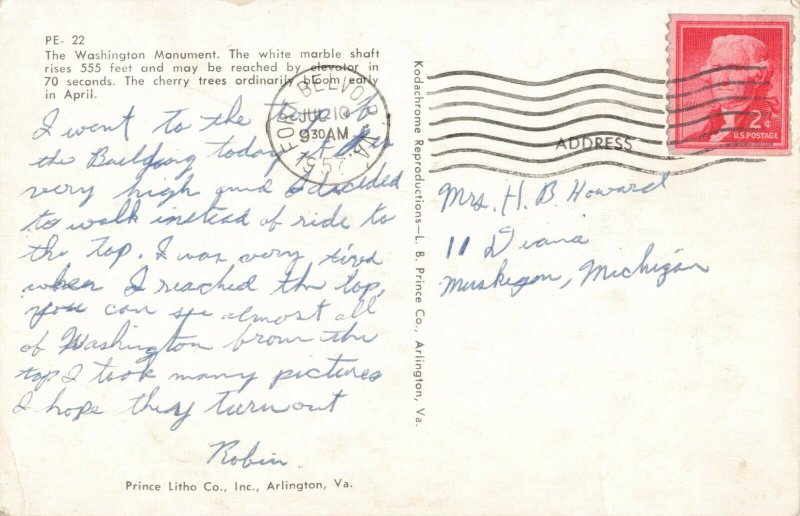 PE- 22
The Washington Monument. The white marble shaft
rises 555 feet and may be reached by elevator in
70 seconds. The cherry trees ordinarily bloom early
in April.
I went to the top of
the Building today it is
very high and I decided
to walk instead of ride to
the top. I was very tired
when I reached the top,
you can see almost all
of Washington from the
top I took many pictures
I hope they turn out
Robin
Prince Litho Co., Inc., Arlington, Va.
Kodachrome Reproductions—L. B. Prince Co., Arlington, Va.
FORT BELVOIR VA.
JUL 10
9 30 AM
1957
2¢
U.S. POSTAGE
ADDRESS
Mrs. H. B Howard
11 Diana
Muskegon, Michigan